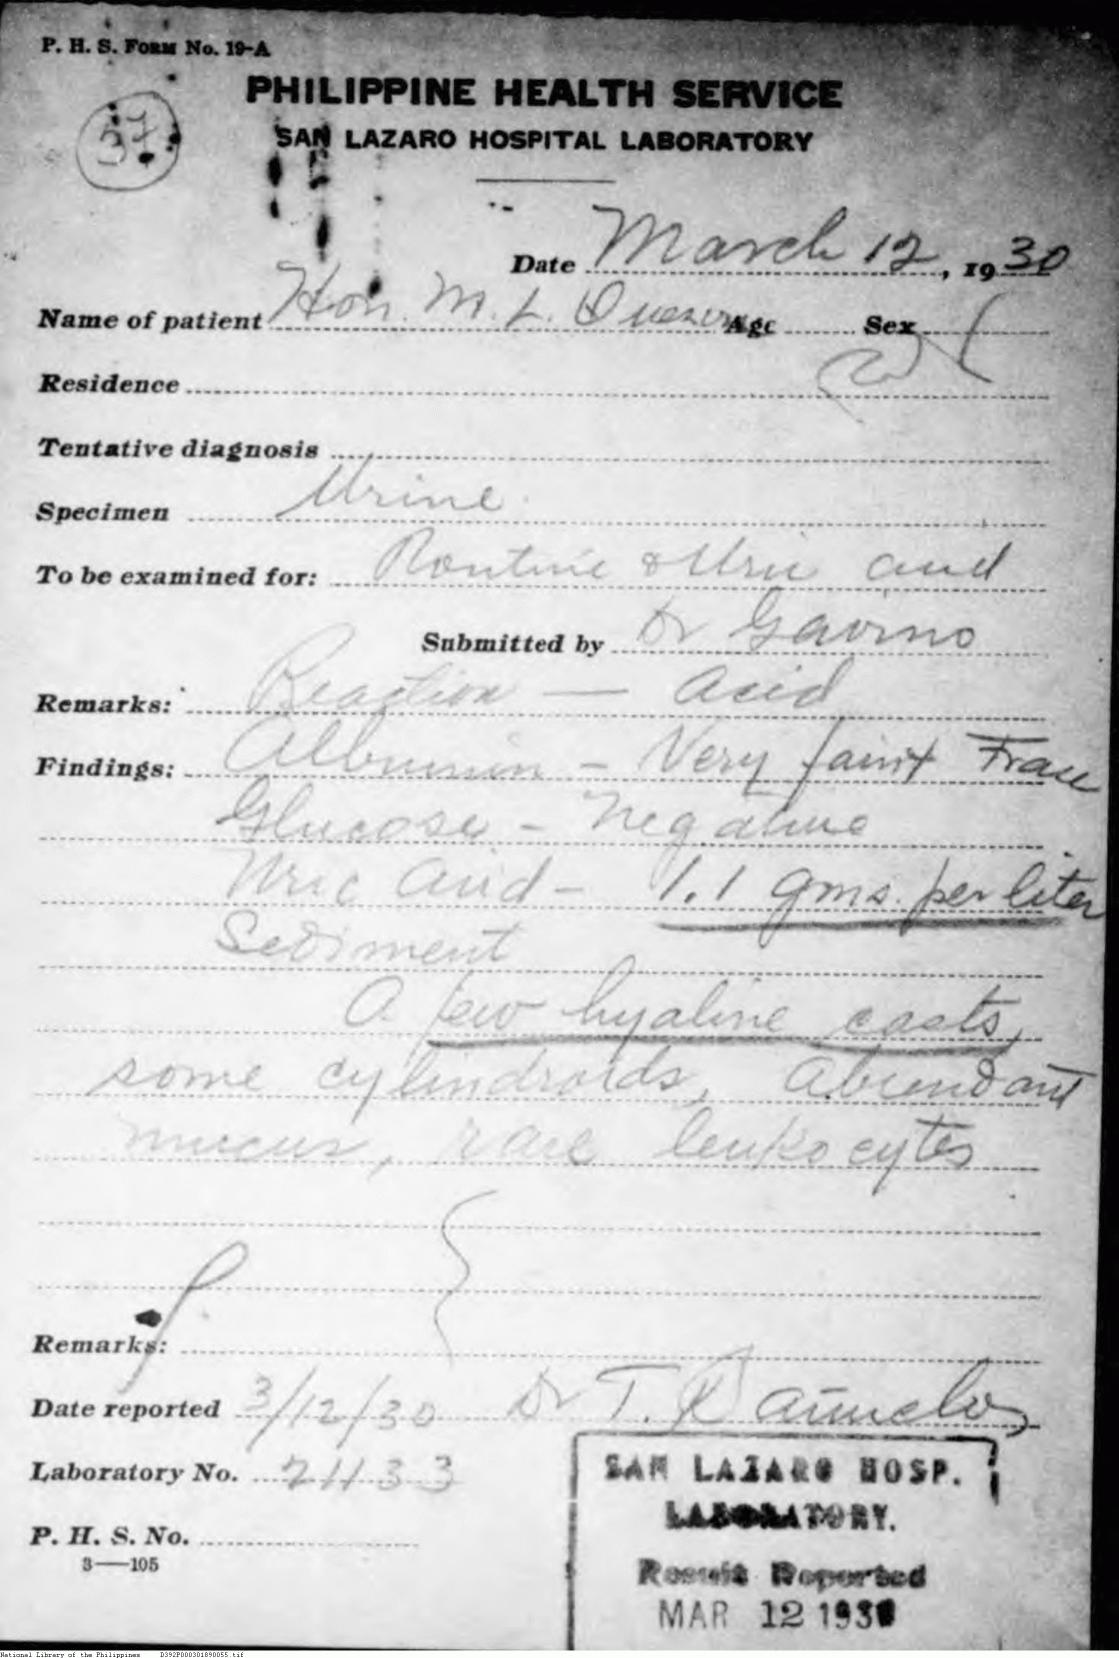 P. H. S. Form No. 19-A
37
PHILIPPINE HEALTH SERVICE
SAN LAZARO HOSPITAL LABORATORY
Date March 12, 1930
Name of patient Hon. M. L. Quezon Age Sex
Residence
Tentative diagnosis
Specimen Urine.
To be examined for: Routine & Uric acid
Submitted by Dr Gavino
Remarks: Reaction — Acid
Findings: Albumin - Very faint Trace
Glucose - Negative
Uric Acid - 1.1 gms. per liter
Sediment
A few hyaline casts,
some cylindroids, abundant
mucus, rare leukocytes
Remarks:
Date reported 3/12/30 Dr T.
Laboratory No. 2433
P. H. S. No.
3—105
SAN LAZARO HOSP.
LABORATORY.
Result Reported
MAR 12 1930
National Library of the Philippines D392P000301890055.tif